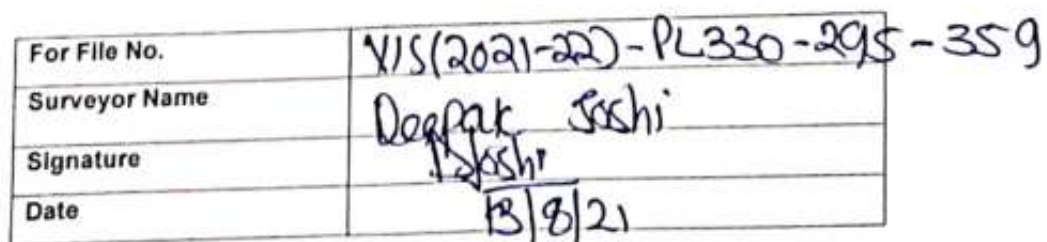 For File No. VIS(2021-22)-PL330-295-359
Surveyor Name Deepak Joshi
Signature Joshi
Date 13/8/21